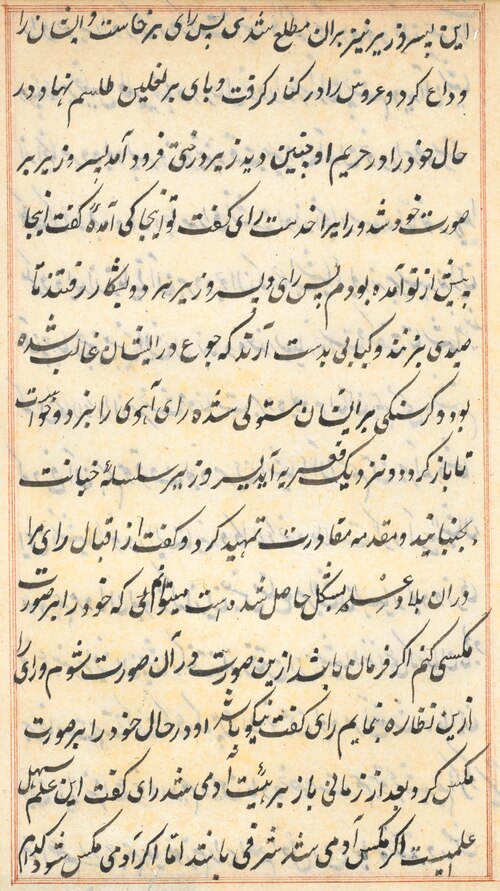 این پسر وزیر نیز بران مطلع شدی پس رای برخاست و ایشان را
وداع کرد و عروس را در کنار کرفت و پای بر نعلین طلسم نهاد در
حال خود را در حریم او چنین دید زیر درختی فرود آمد پسر وزیر بر
صورت خود شد و رابراخدمت رای کفت تو اینجا کی آمدهٔ کفت اینجا
پیش از تو آمده بودم پس رای و پسر وزیر هر دو بشکار رفتند تا
صیدی بزنند و کبابی بدست آرند که جوع در ایشان غالب شده
بود و کرسنکی بر ایشان مستولی شده رای آهوی را بزد و خواست
تا باز کردد و نزدیک قعریه آید پسر وزیر سلسلهٔ خیانت
بجنبانید و مقدمه مقادرت تمهید کرد و کفت از اقبال رای مرا
دران بلاد علم مشکل حاصل شده است میتوانم که خود را بر صورت
مکسی کنم اکر فرمان باشد ازین صورت در آن صورت شوم و رای را
ازین نظاره بنمایم رای کفت نیکو باشد او در حال خود را بر صورت
مکس کرد و بعد از زمانی باز بر هیئت آدمی شد رای کفت این علم سهل
علمیست اکر مکس آدمی شد شرفی یابد اما اکر آدمی مکس شود کدام